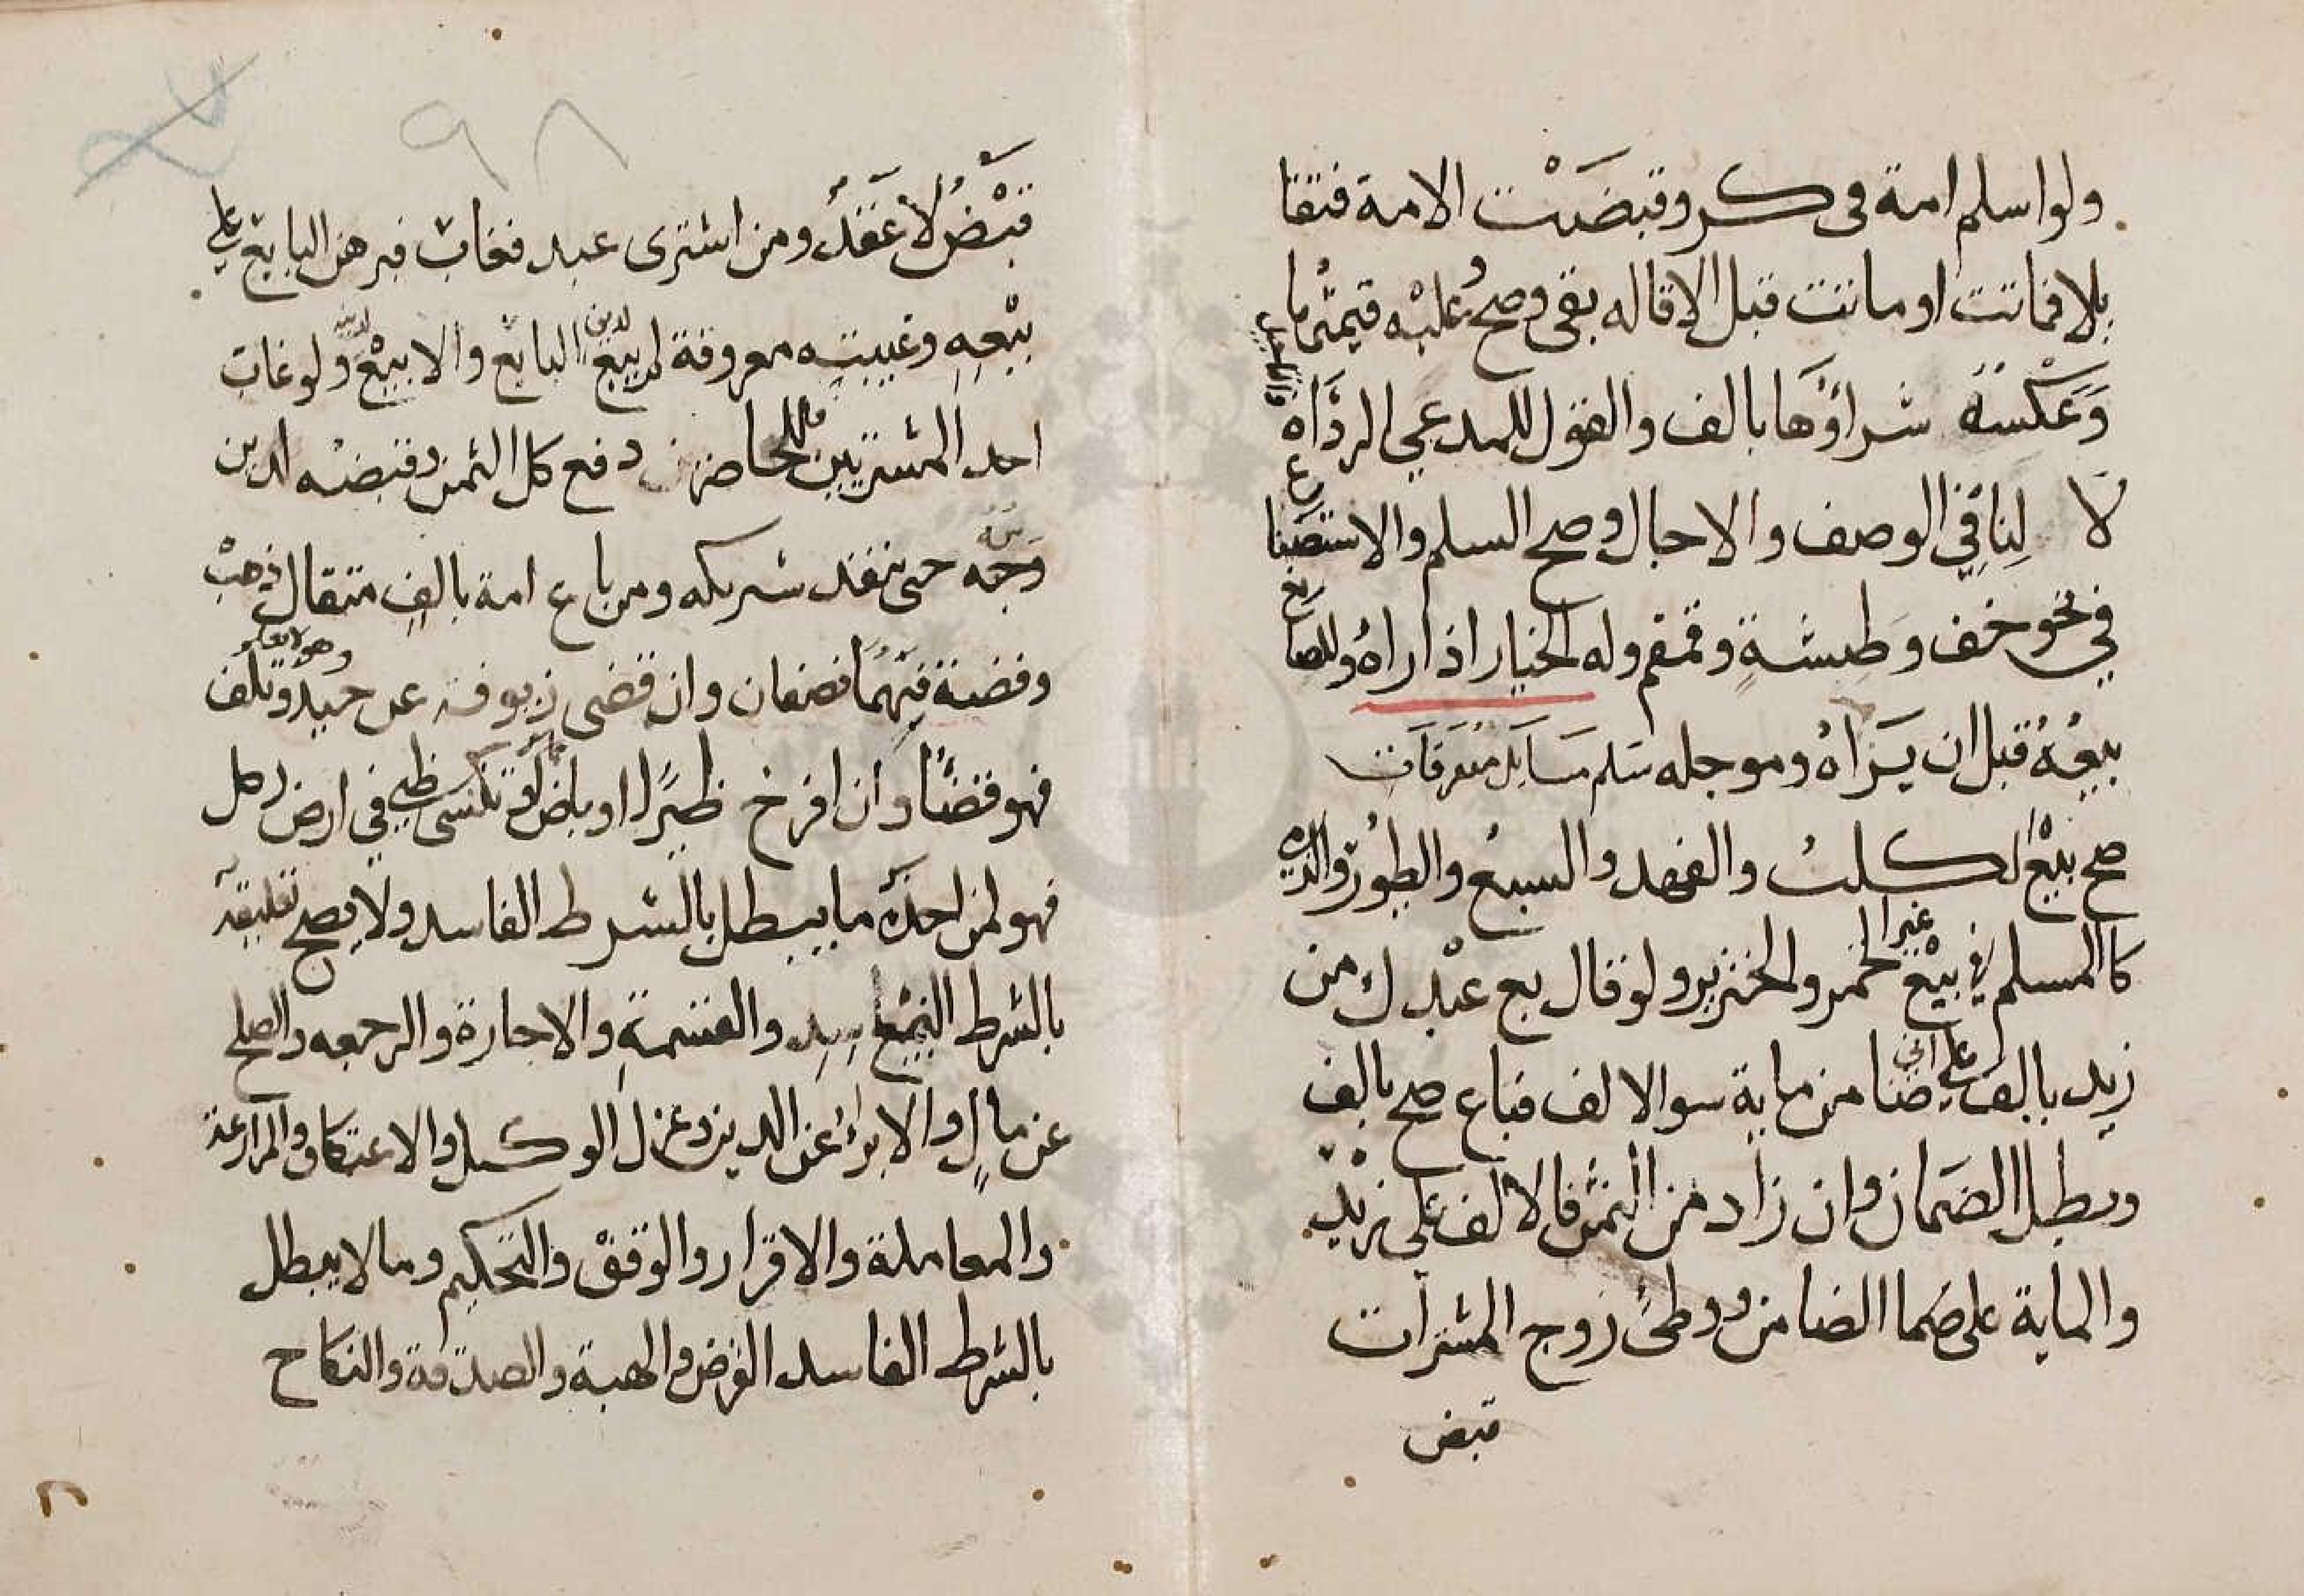 ولو اسلم امة فى كر وقبضت الامة فتقا
يلا فماتت او ماتت قبل الاقاله بقى وصح وعليه قيمتها
وعكسه شراؤها بالف والقول للمدعي الرداه
لا لنافي الوصف والاجال وصح السلم والاستصنا
ع
في نحو خف وطشة وقمقم وله الخيار اذا راه وللصا
نع
بيعه قبل ان يراه وموجله سلم مسايل متفرقات
صح بيع الكلب والفهد والسبع والطيور والذمي
كالمسلم في بيع غير الخمر والخنزير ولو قال بع عبدك من
زيد بالف على اني ضنا من ماية سوا الالف فباع صح بالف
وبطل الضمان وان زاد من الثمن فالالف على زيد
والماية على ضما الضامن ووطئ زوج المشترات
قبض
٩٨
قبض لا عقد ومن اشترى عبد فغاب فبرهن البايع على
بيعه وغيبته معروفة لم يبع لدين البايع والا بيع لدينه ولو غاب
احد المشتريين فللحاضر دفع كل الثمن وقبضه
حتى ينقد شريكه ومن باع امة بالف مثقال ذهب
وفضة فهما نصفان وان قضى زيوف عن جيد وتلف
وهو لا يعلم
فهو قضا وان افرخ طيرا او باض او تكنس ظبي في ارض رجل
فهو لمن اخذه ما يبطل بالشرط الفاسد ولا يصح تعليقه
بالشرط البيع والقسمة والاجارة والرجعه والصلح
عن مال والابرا عن الدين وعزل الوكيل والاعتكاف والمزارعة
والمعاملة والاقرار والوقف والتحكيم وما لا يبطل
بالشرط الفاسد القرض والهبة والصدقة والنكاح